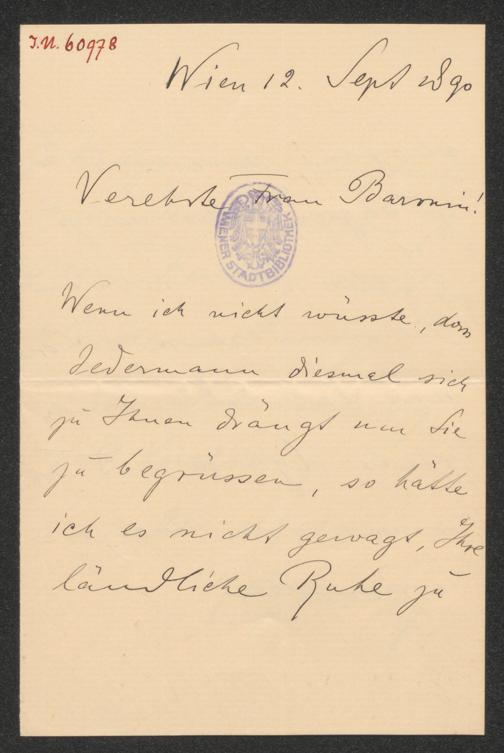 J.N. 60978
Wien 12. Sept 1890
Verehrte Frau Baronin!
WIENER STADTBIBLIOTHEK
Wenn ich nicht wüsste, dass
Jedermann diesmal sich
zu Ihnen drängt um Sie
zu begrüssen, so hätte
ich es nicht gewagt, Ihre
ländliche Ruhe zu